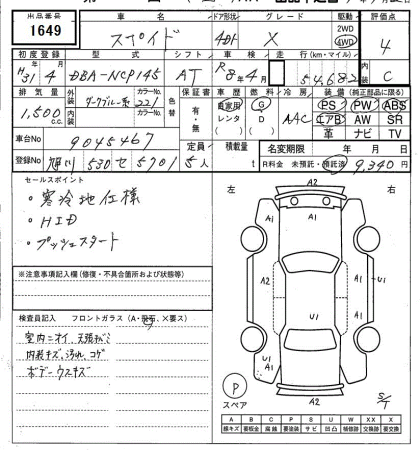 出品番号 車名 ドア形状 グレード 駆動 評価点
1649 スペイド 4DR X 2WD 4WD 4
初度登録 型式 シフト 車検 走行(km・マイル) 内装
H31 4 DBA-NCP145 AT R8年4月 54,682 C
排気量 外装 カラーNo. 色替 保証書 車歴 燃料 冷房 装備(純正部品に限る)
1,500c.c. ダークブルー系 221 有・無 自家用 レンタ ( ) G D ( ) AAC PS PW ABS
内装 カラーNo. エアB AW SR
革 ナビ TV
車台No 9045467 定員 積載量 名変期限 年 月 日
登録No 旭川 530 せ 5701 5人 t R料金 未預託・預託済 9,340円
セールスポイント
・寒冷地仕様
・HID
・プッシュスタート
※注意事項記入欄(修復・不具合箇所および状態等)
検査員記入 フロントガラス(A・飛石、×要ス)
室内ニオイ、天張
内装キズ、汚れ、コゲ
ボデーウスキズ
左 A2 右
A1 A1
A2 A2
A1 U1
U1
U1
A1 A1
P
スペア
A2
S/T
A B C P S U W X XX X
線キズ 要板金 腐蝕 要塗装 サビ 凹凸 補修跡 交換跡 要交換